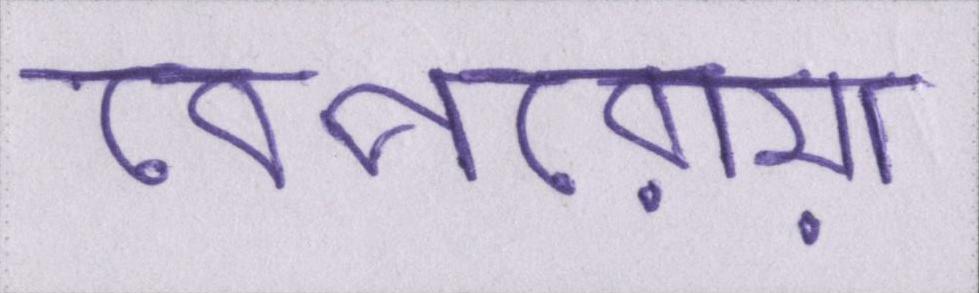 বেপরোয়া